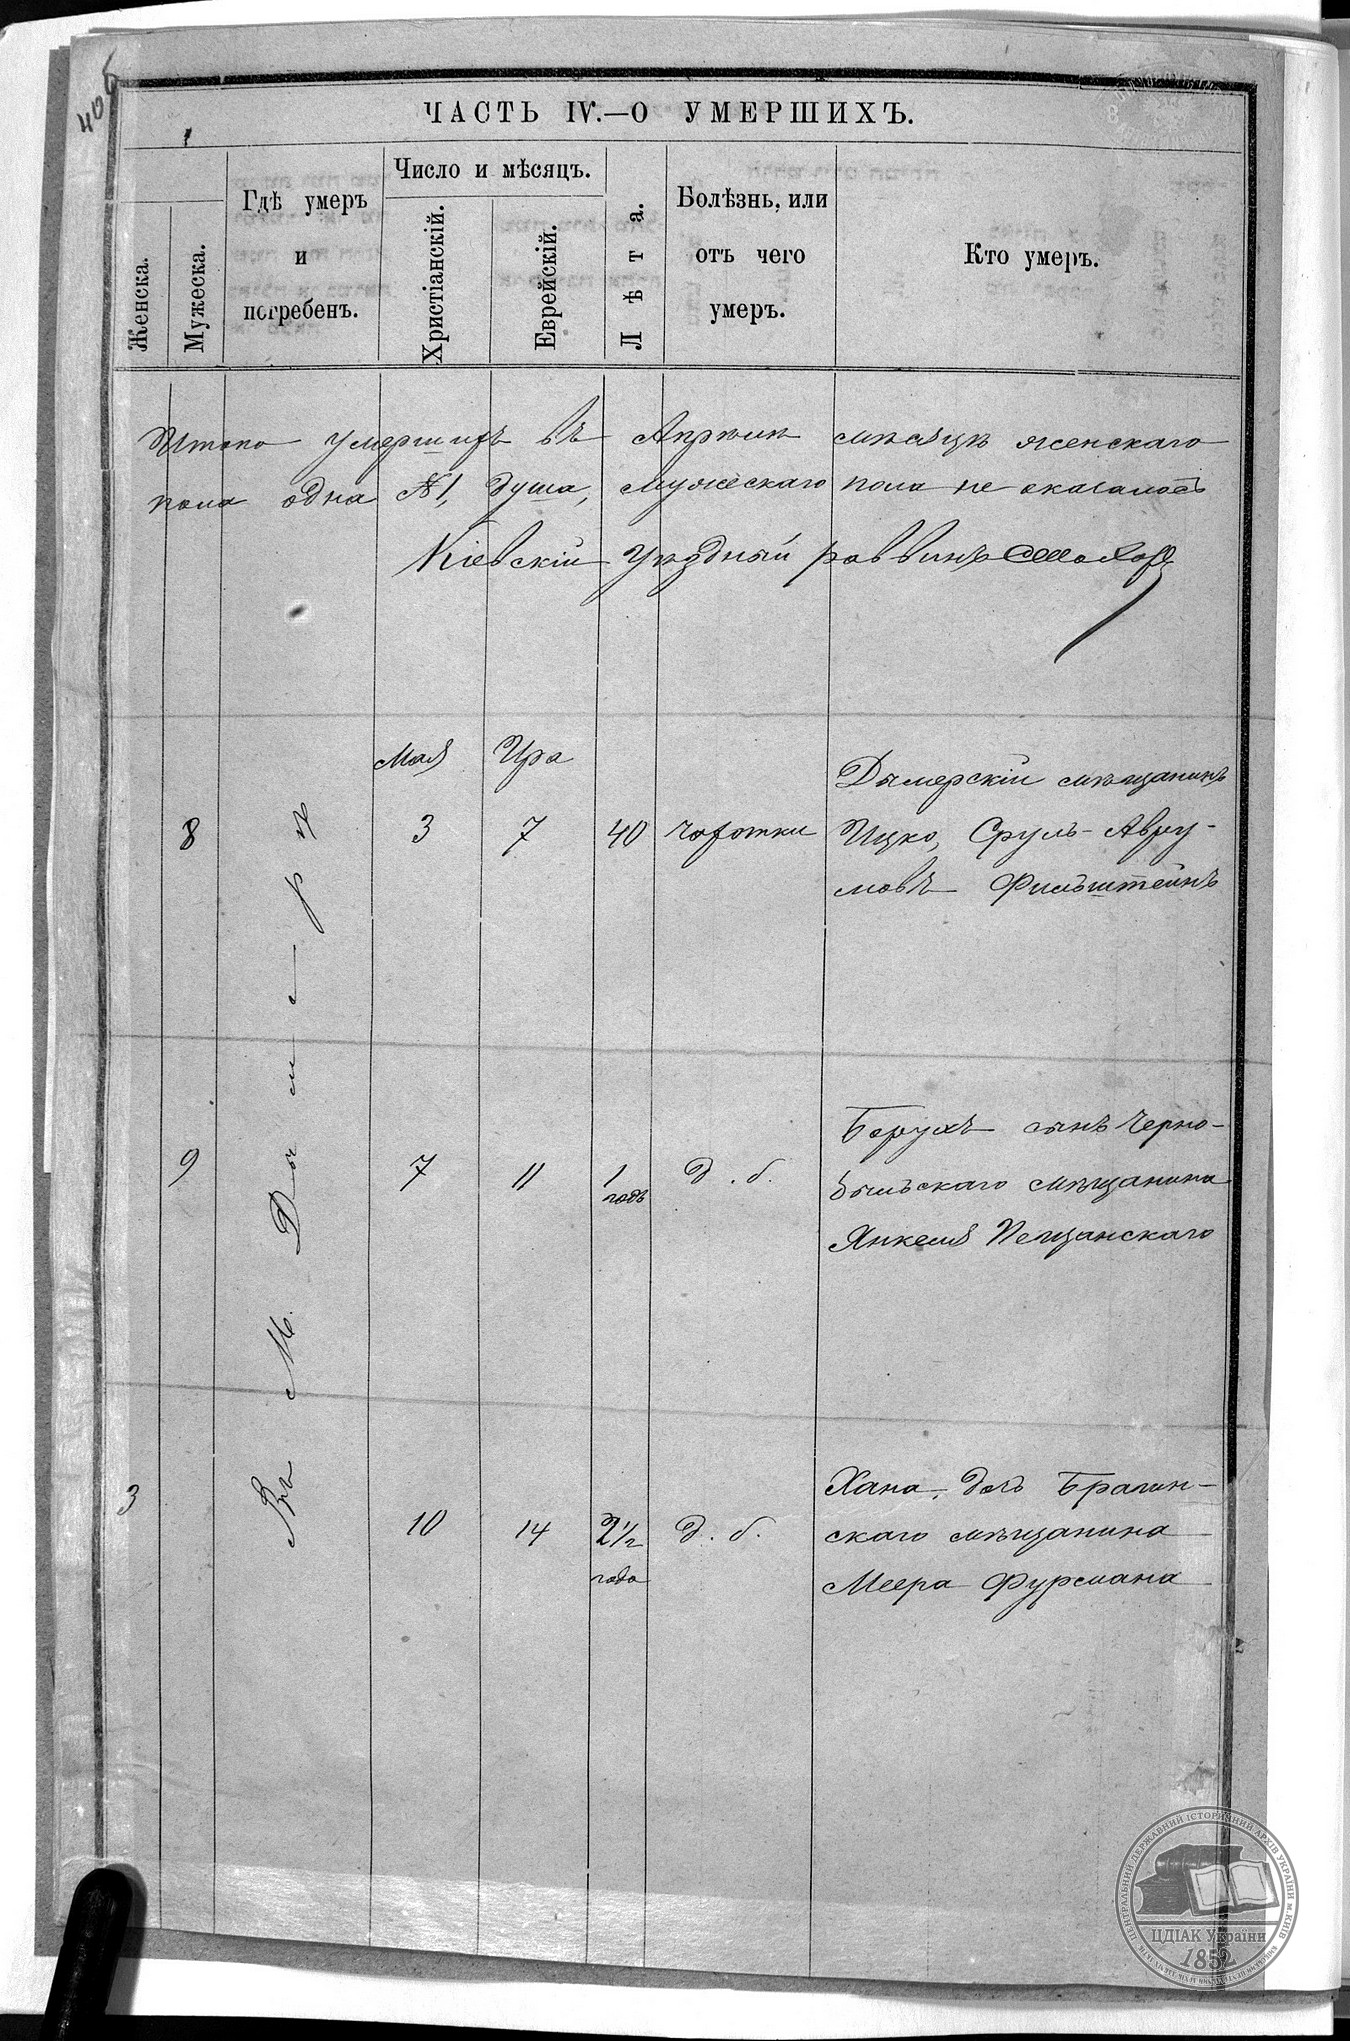 406
ЧАСТЬ IV.—О УМЕРШИХЪ.
Женска.
Мужеска.
Гдѣ умеръ
и
погребенъ.
Число и мѣсяцъ.
Христіанскій.
Еврейскій.
Лѣта.
Болѣзнь, или
отъ чего
умеръ.
Кто умеръ.
Итого умершихъ въ Апрѣлѣ мѣсяцѣ женскаго
пола одна №1, душа, мужескаго пола не оказалось
Кіевскій Уѣздный раввинъ
Въ М. Дымерѣ
Мая Ира
8 3 7 40 чахотки
Дымерскій мѣщанинъ
Ицко, Сруль-Авру-
мовъ Фильштейнъ
9 7 11 1 годъ д. б.
Борухъ сынъ Черно-
быльскаго мѣщанина
Янкеля Пещанскаго
3 10 14 2 1/2 года д. б.
Хана, дочь Брагин-
скаго мѣщанина
Меера Фурмана
ЦЕНТРАЛЬНИЙ ДЕРЖАВНИЙ ІСТОРИЧНИЙ АРХІВ УКРАЇНИ м. КИЇВ
ЦДІАК України
1852